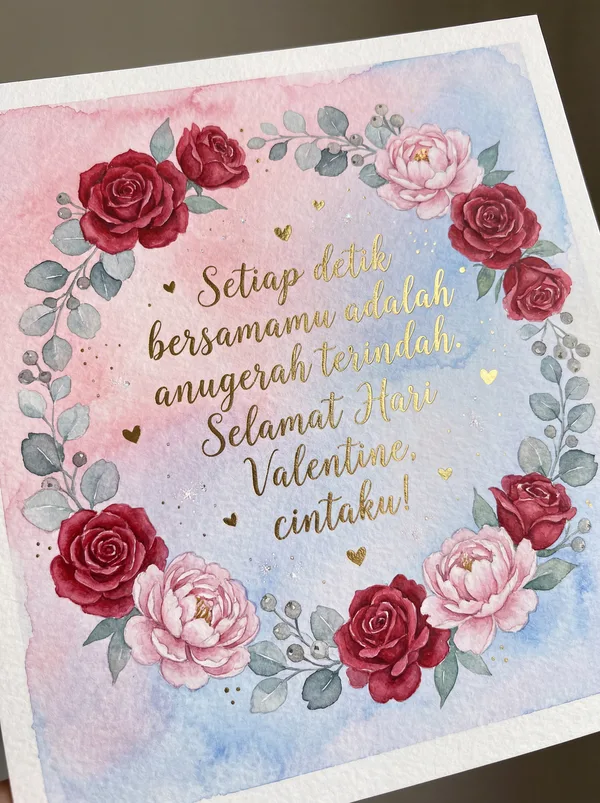 Setiap detik
bersamamu adalah
anugerah terindah.
Selamat Hari
Valentine,
cintaku!